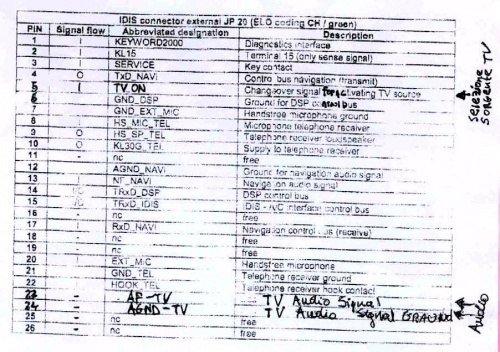 IDIS connector external JP 20 (ELO coding CR / green)
PIN Signal flow Abbreviated designation Description
1 I KEYWORD2000 Diagnostics interface
2 I KL15 Terminal 15 (only sense signal)
3 I SERVICE Key contact
4 O TxD_NAVI Control bus navigation (transmit)
5 I TV ON Changeover signal for activating TV source
6 - GND_DSP Ground for DSP control bus
7 - GND_EXT_MIC Handsfree microphone ground
8 HS_MIC_TEL Microphone telephone receiver
9 O HS_SP_TEL Telephone receiver loudspeaker
10 O KL30G_TEL Supply to telephone receiver
11 - nc free
12 AGND_NAVI Ground for navigation audio signal
13 NF_NAVI Navigation audio signal
14 I/O TRxD_DSP DSP control bus
15 I/O TRxD_IDIS IDIS - IVC interface control bus
16 - nc free
17 RxD_NAVI Navigation control bus (receive)
18 - nc free
19 - nc free
20 EXT_MIC Handsfree microphone
21 GND_TEL Telephone receiver ground
22 HOOK_TEL Telephone receiver hook contact
23 - AF-TV TV Audio Signal
24 - AGND-TV TV Audio Signal GRAUND
25 - nc free
26 - nc free
selezione
sorgente TV
Audio